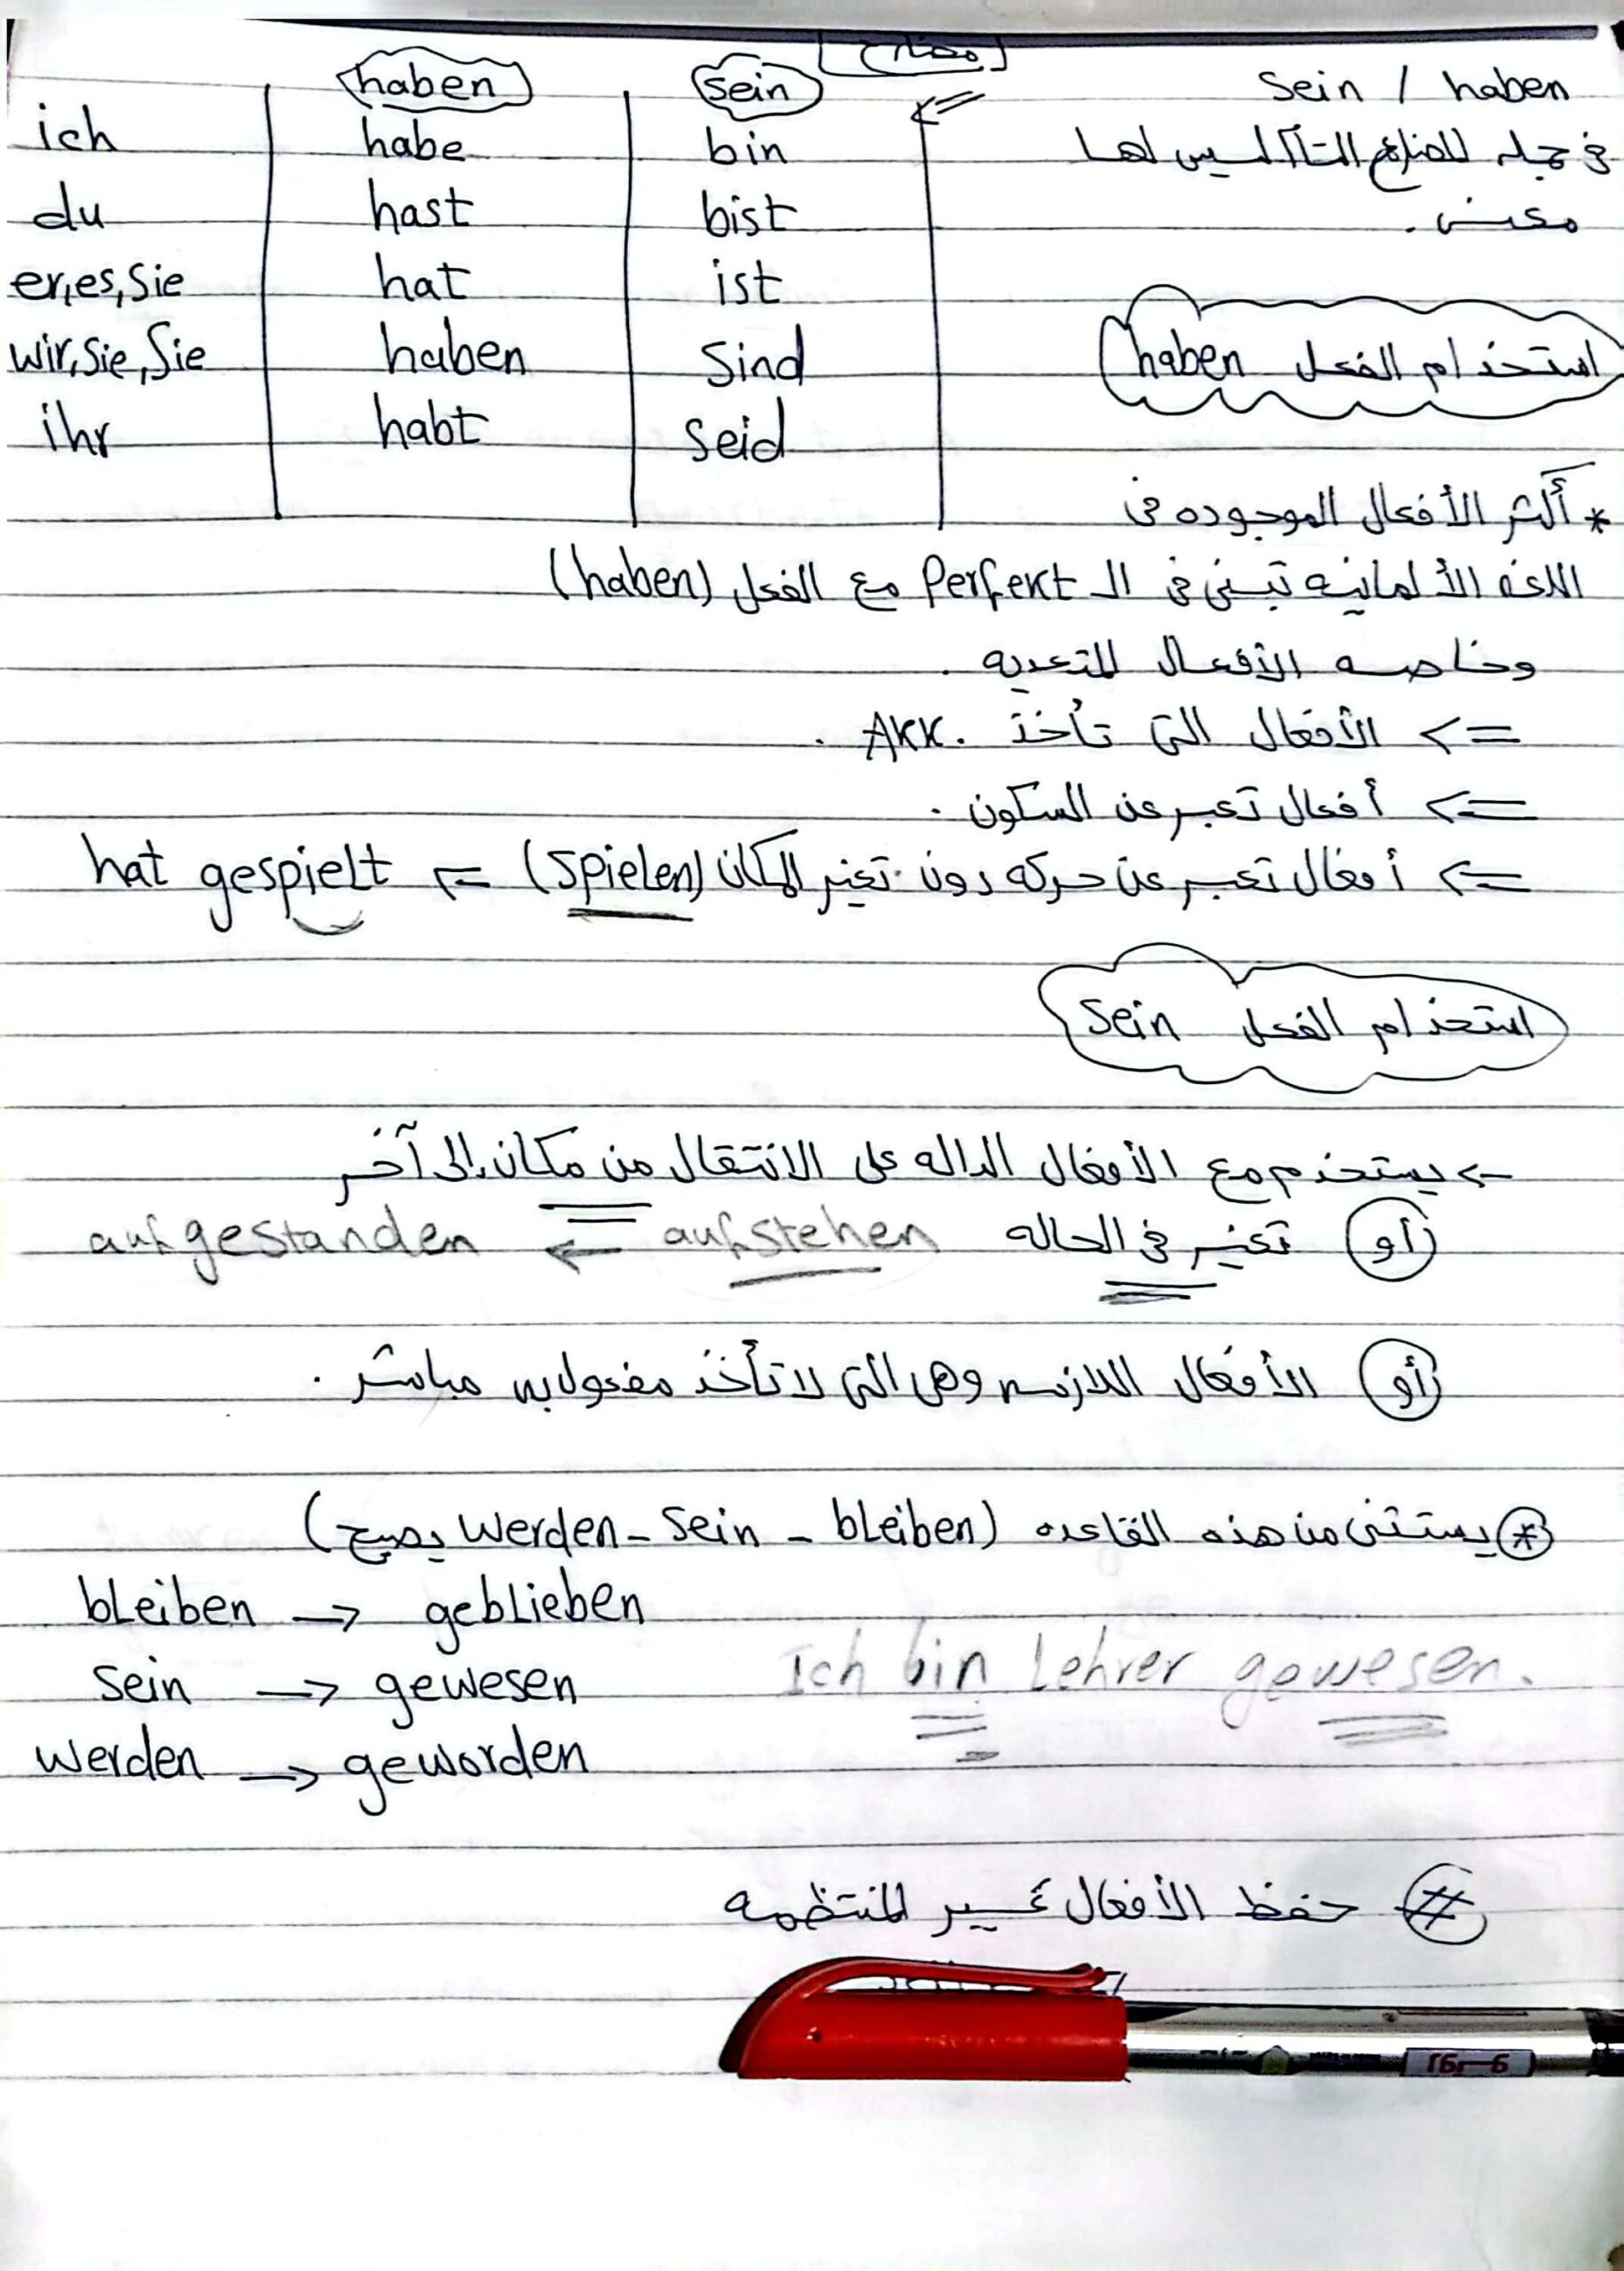 مضارع
sein / haben
في جمله المضارع التام ليس لها
معنى .
haben	sein
ich	habe	bin
du	hast	bist
er,es,sie	hat	ist
wir,sie,Sie	haben	sind
ihr	habt	seid
استخدام الفعل haben
* أكثر الأفعال الموجوده فى
اللغه الألمانيه تبنى فى الـ Perfekt مع الفعل (haben)
وخاصه الأفعال المتعديه .
=> الأفعال التى تأخذ Akk. .
=> أفعال تعبر عن السكون .
=> أفعال تعبر عن حركه دون تغير المكان (spielen) => hat gespielt
استخدام الفعل sein
-> يستخدم مع الأفعال الداله على الانتقال من مكان إلى آخر
أو تغير فى الحاله aufstehen -> aufgestanden
أو الأفعال اللازمه وهى التى لا تأخذ مفعول به مباشر .
* يستثنى من هذه القاعده (bleiben - sein - werden يصبح)
bleiben -> geblieben
sein -> gewesen
Ich bin Lehrer gewesen.
werden -> geworden
# حفظ الأفعال غير المنتظمه